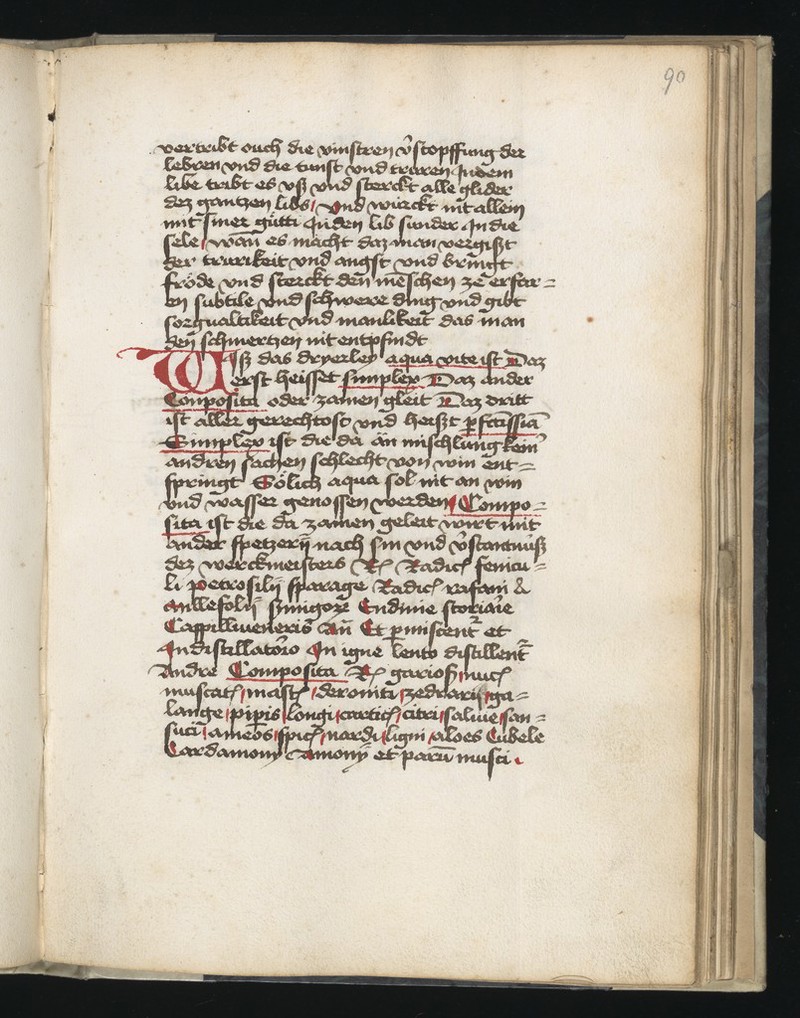 90
vertribt ouch die vinstren v̄stopffung der
lebren vnd die tunst vnd truren In dem
libe tribt es vß vnd sterckt alle glider
dez gantzen libs vnd würckt nit allein
mit siner gütti In den lib sunder In die
sele wan̄ es macht daz man vergißt
der trurikeit vnd angst vnd bringt
fröde vnd sterckt den mēschen ze erfar=
en subtile vnd schwere ding vnd gibt
sorgualtikeit vnd manlikeit das man
den schmertzen nit entpfindt
Wiß das dryerley aqua vite ist Daz
erst heisset simplex Daz ander
Conposita oder zamen gleit Daz dritt
ist aller gerechtost vnd heißt pfctissīa
Simplex ist die da an mischlung kein̄
andren sachen schlecht von win ent=
springt Sölich aqua sol nit an win
vnd wasser genossen werden Compo=
sita ist die da zamen geleit wirt mit
ander spetzerij nach sin vnd v̄stantnüß
dez werckmeisters Rc Radic fenicu=
li petrosilij sparage Radic rafani &
millefolij Endiuie
Cappilliueneris an̄ Et pmiscent̄ et
In distillatorō In igne lento distillent̄
Andre Composita Rc gariof nuc
muscat mast deroniti zeduarij ga=
lange pipis longi cartic citri saluie san=
suci ameos spic nardi ligni aloes Cubele
Cardamomy Amomy et parū musci